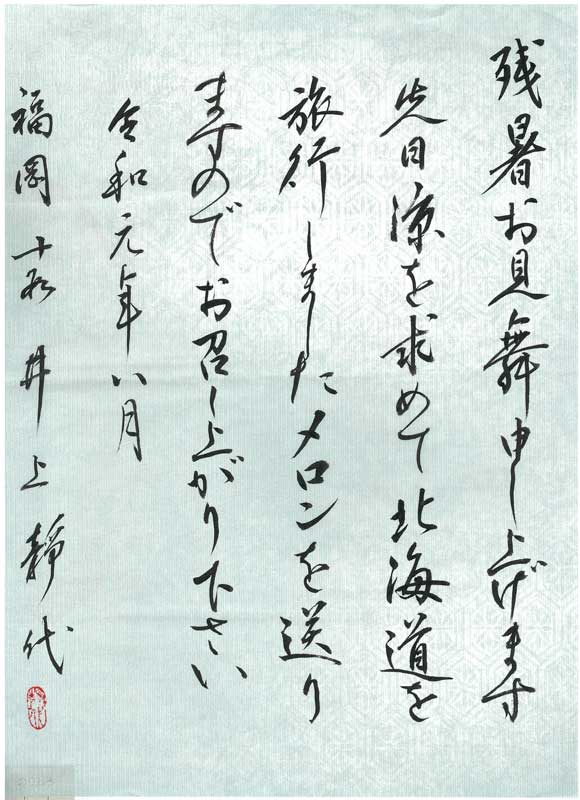 残暑お見舞申し上げます
先日涼を求めて北海道を
旅行しましたメロンを送り
ますのでお召し上がり下さい
令和元年八月
福岡 井上静代